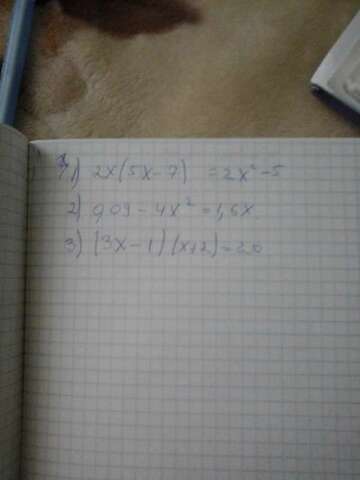 1) 2x(5x-7) = 2x²-5
2) 0,09 - 4x² = 1,6x.
3) (3x-1)(x+2)=20